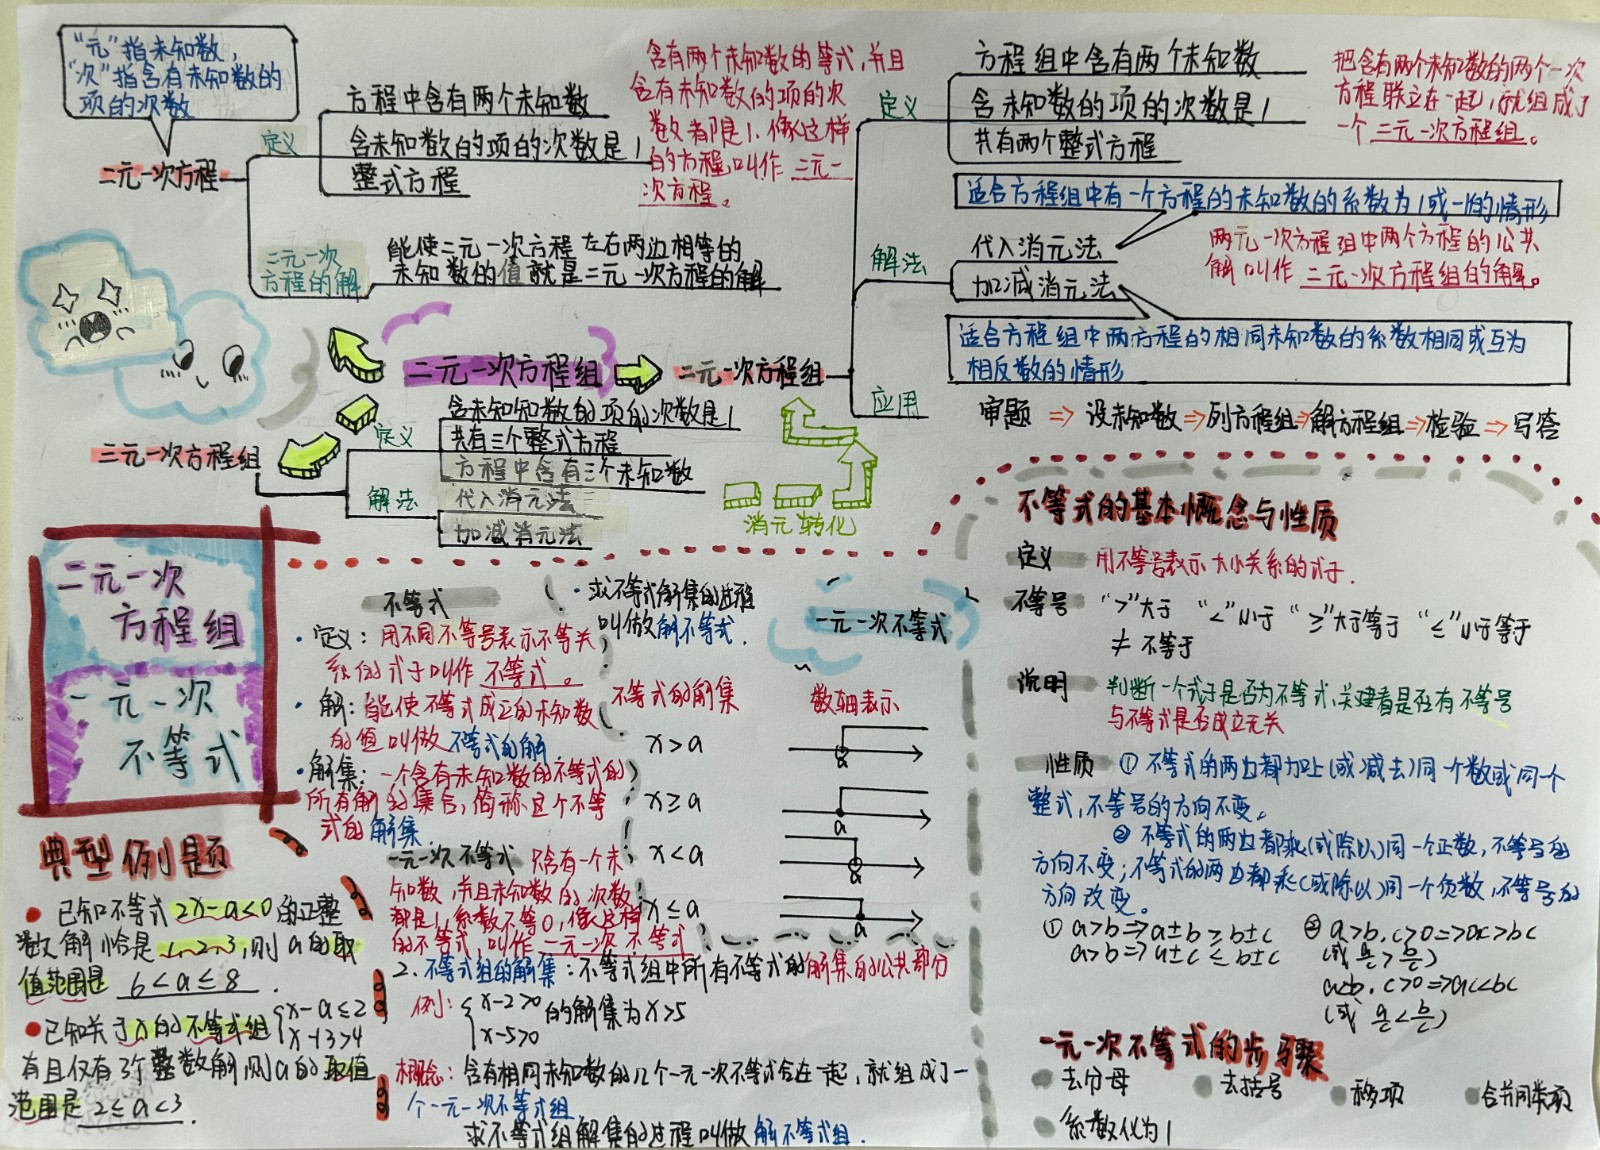 “元”指未知数,
“次”指含有未知数的
项的次数
二元一次方程
定义
方程中含有两个未知数
含未知数的项的次数是1
整式方程
含有两个未知数的等式,并且
含有未知数的项的次
数都是1,像这样
的方程叫作 二元一
次方程。
二元一次
方程的解
能使二元一次方程左右两边相等的
未知数的值就是二元一次方程的解
二元一次方程组
二元一次方程组
定义
方程组中含有两个未知数
含未知数的项的次数是1
共有两个整式方程
把含有两个未知数的两个一次
方程联立在一起,就组成了
一个二元一次方程组。
适合方程组中有一个方程的未知数的系数为1或-1的情形
解法
代入消元法
加减消元法
两元一次方程组中两个方程的公共
解叫作 二元一次方程组的解。
适合方程组中两方程的相同未知数的系数相同或互为
相反数的情形
应用
审题⇒设未知数⇒列方程组⇒解方程组⇒检验⇒写答
三元一次方程组
定义
含未知知数的项的次数是1
共有三个整式方程
方程中含有三个未知数
解法
代入消元法
加减消元法
消元 转化
二元一次
方程组
一元一次
不等式
不等式
·定义:用不同不等号表示不等关
系的式子叫作 不等式。
·解:能使不等式成立的未知数
的值叫做 不等式的解
·解集:一个含有未知数的不等式的
所有解的集合,简称这个不等
式的解集.
一元一次不等式 只含有一个未
知数,并且未知数的次数
都是1,系数不等0,像这样
的不等式,叫作一元一次不等式
·求不等式解集的过程
叫做解不等式.
一元一次不等式
不等式的解集 数轴表示
x>a
a
x≥a
a
x<a
a
x≤a
a
2.不等式组的解集:不等式组中所有不等式的解集的公共部分
例:{x-2>0
x-5>0 的解集为x>5
概念:含有相同未知数的几个一元一次不等式合在一起,就组成了一
个一元一次不等式组
求不等式组解集的过程叫做解不等式组.
典型例题
● 已知不等式2x-a<0的正整
数解恰是1、2、3,则a的取
值范围是 6<a≤8 .
● 已知关于x的不等式组{x-a≤2
x-13>4
有且仅有3个整数解,则a的取值
范围是 2≤a<3 .
不等式的基本概念与性质
定义 用不等号表示大小关系的式子.
不等号 “>”大于 “<”小于 “≥”大于等于 “≤”小于等于
≠ 不等于
说明 判断一个式子是否为不等式,关建看是否有不等号
与不等式是否成立无关
性质 ①不等式的两边都加上(或减去)同一个数或同一个
整式,不等号的方向不变。
②不等式的两边都乘(或除以)同一个正数,不等号的
方向不变;不等式的两边都乘(或除以)同一个负数,不等号的
方向改变。
① a>b⇒a±b≥b±c
a>b⇒a±c≤b±c
② a>b,c>0⇒ac>bc
(或 a/c>b/c)
a<b,c>0⇒ac<bc
(或 a/c<b/c)
一元一次不等式的步骤
●去分母 ●去括号 ●移项 ●合并同类项
●系数化为1